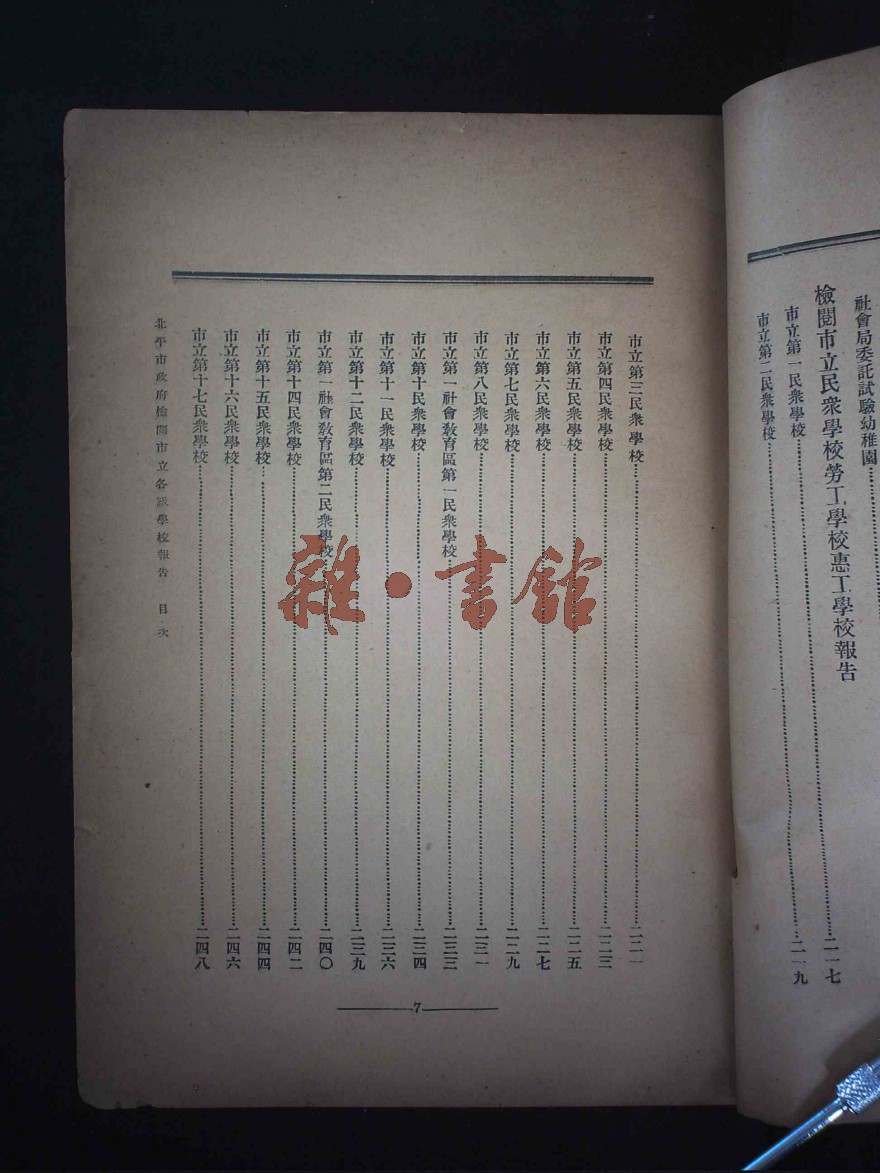 社會局委託試驗幼稚園
檢閱市立民衆學校勞工學校惠工學校報告
市立第一民衆學校……二一七
市立第二民衆學校……二一九
市立第三民衆學校……二二一
市立第四民衆學校……二二三
市立第五民衆學校……二二五
市立第六民衆學校……二二七
市立第七民衆學校……二二九
市立第八民衆學校……二三一
市立第一社會敎育區第一民衆學校……二三三
市立第十民衆學校……二三四
市立第十一民衆學校……二三六
市立第十二民衆學校……二三九
市立第一社會敎育區第二民衆學校……二四〇
市立第十四民衆學校……二四二
市立第十五民衆學校……二四四
市立第十六民衆學校……二四六
市立第十七民衆學校……二四八
北平市政府檢閱市立各級學校報告 目次
7
雜·書館